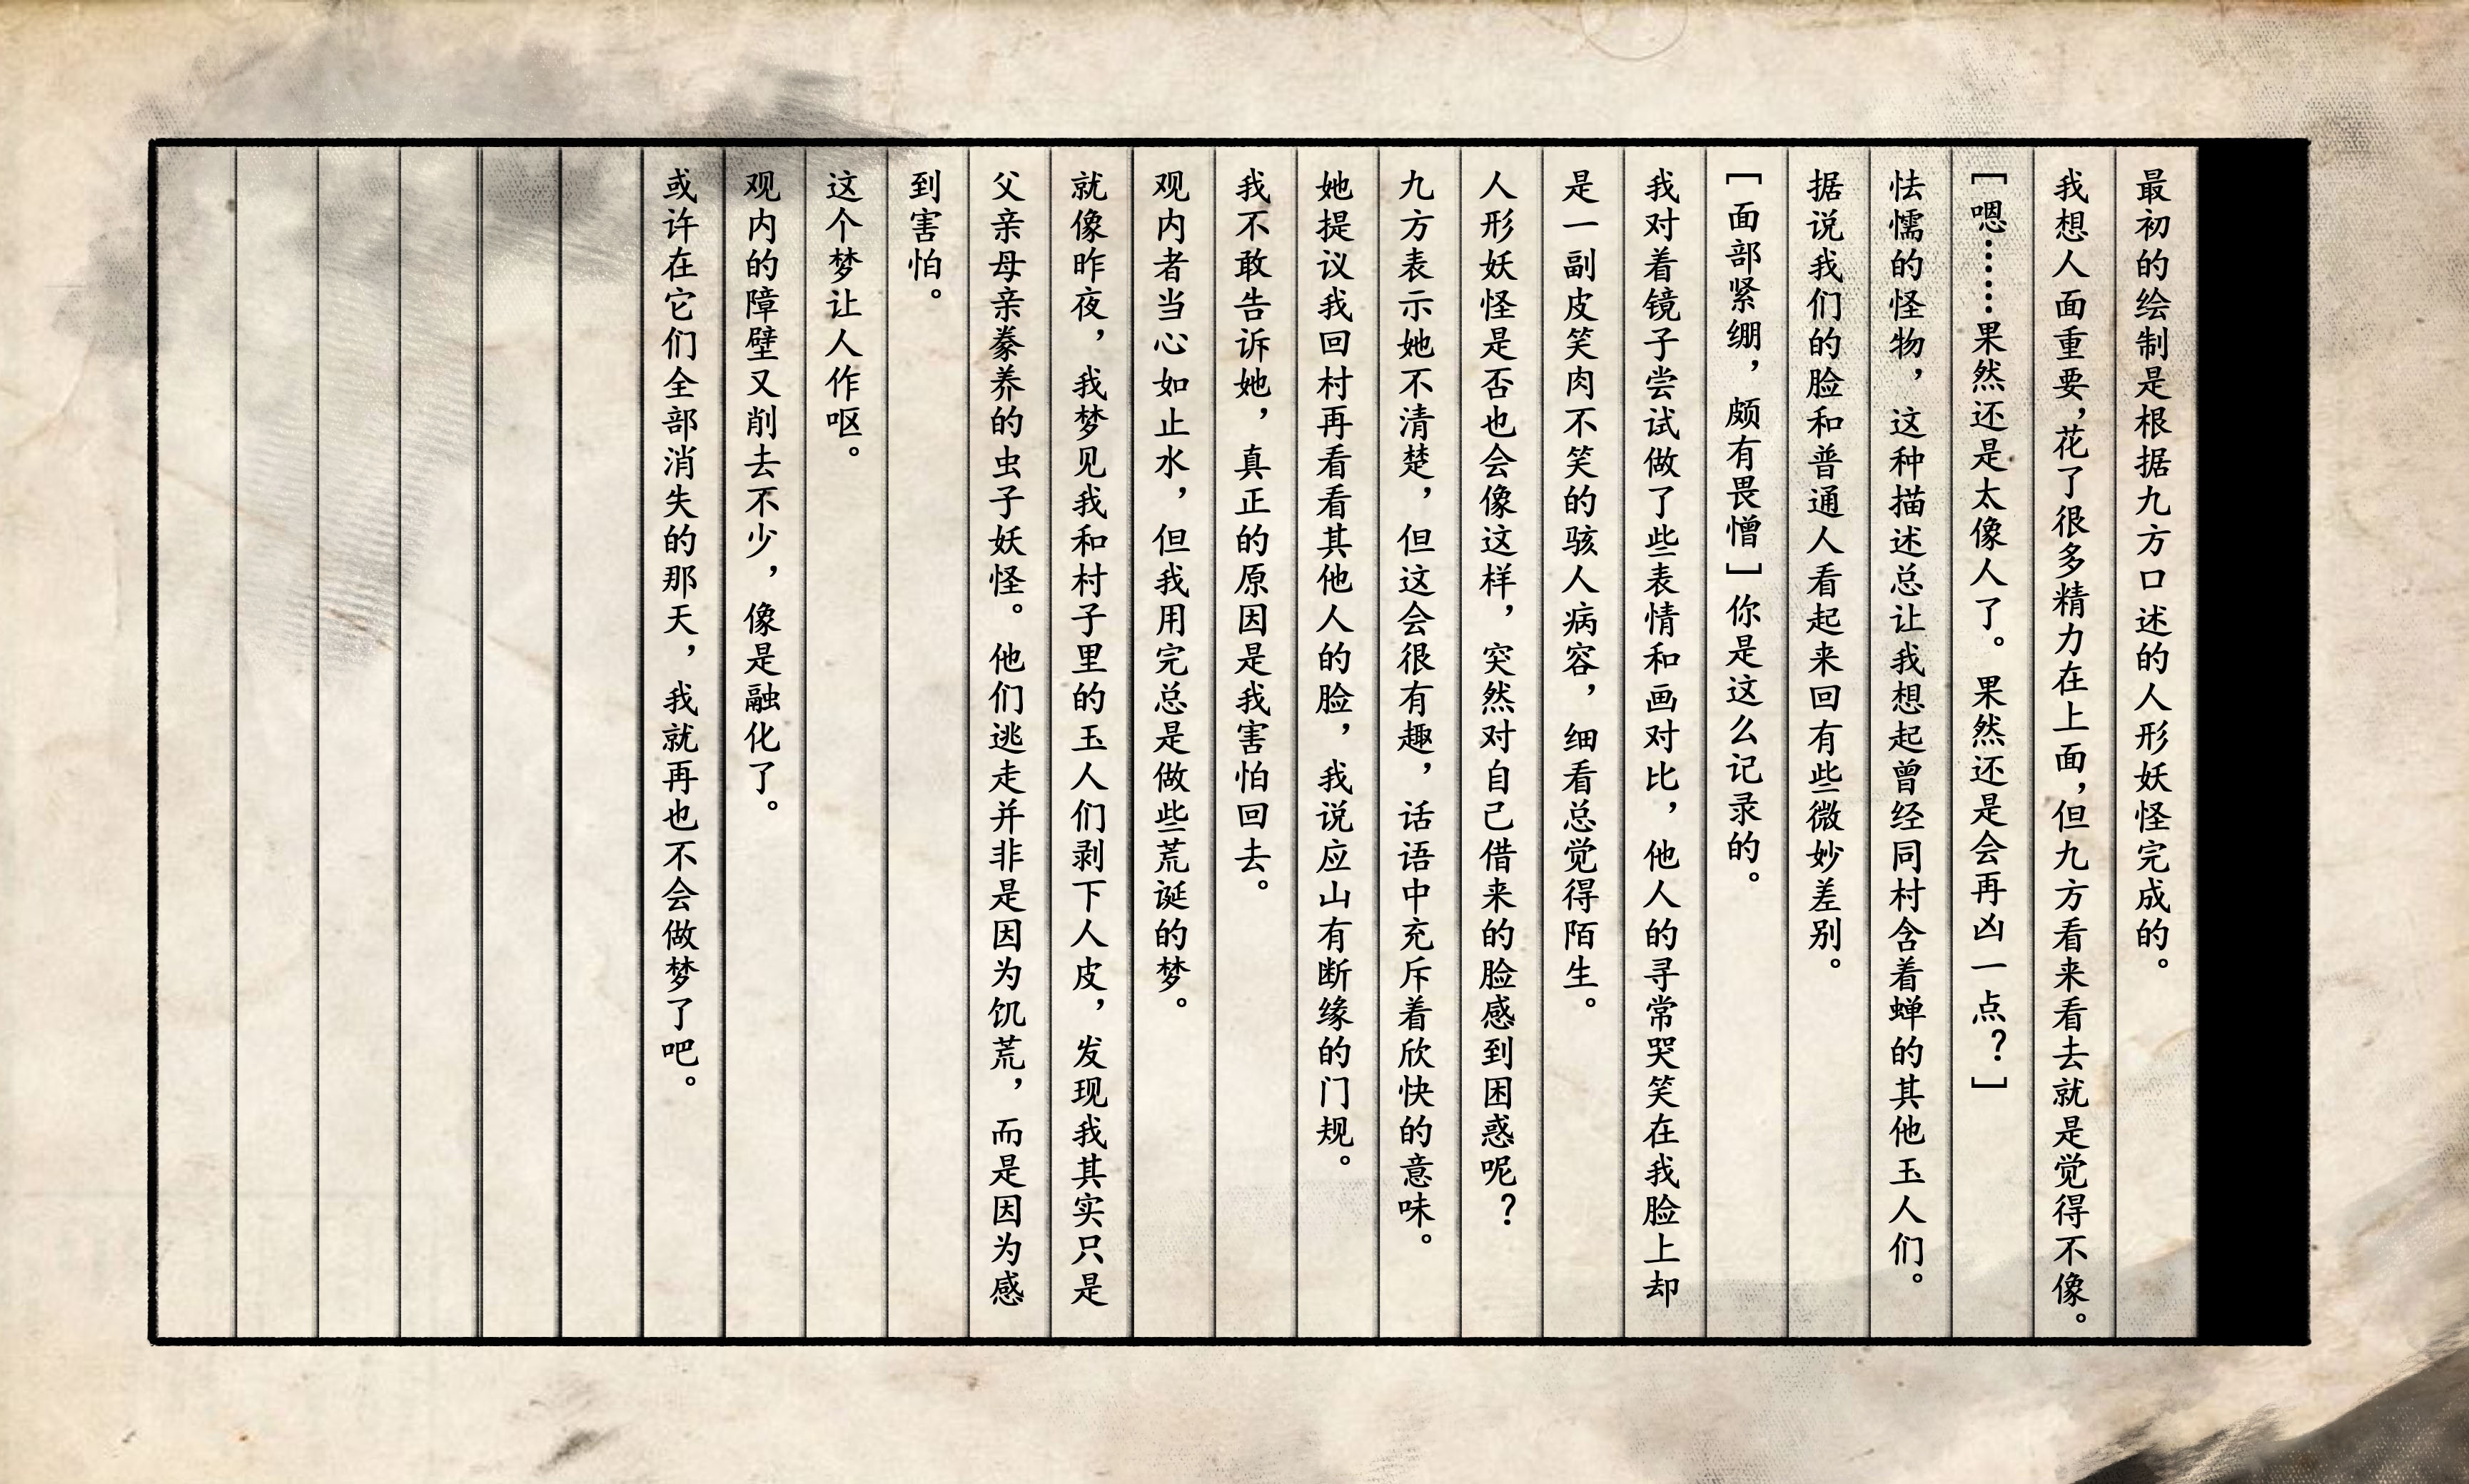 最初的绘制是根据九方口述的人形妖怪完成的。
我想人面重要，花了很多精力在上面，但九方看来看去就是觉得不像。
［嗯……果然还是太像人了。果然还是会再凶一点？］
怯懦的怪物，这种描述总让我想起曾经同村含着蝉的其他玉人们。
据说我们的脸和普通人看起来回有些微妙差别。
［面部紧绷，颇有畏憎］你是这么记录的。
我对着镜子尝试做了些表情和画对比，他人的寻常哭笑在我脸上却
是一副皮笑肉不笑的骇人病容，细看总觉得陌生。
人形妖怪是否也会像这样，突然对自己借来的脸感到困惑呢？
九方表示她不清楚，但这会很有趣，话语中充斥着欣快的意味。
她提议我回村再看看其他人的脸，我说应山有断缘的门规。
我不敢告诉她，真正的原因是我害怕回去。
观内者当心如止水，但我用完总是做些荒诞的梦。
就像昨夜，我梦见我和村子里的玉人们剥下人皮，发现我其实只是
父亲母亲豢养的虫子妖怪。他们逃走并非是因为饥荒，而是因为感
到害怕。
这个梦让人作呕。
观内的障壁又削去不少，像是融化了。
或许在它们全部消失的那天，我就再也不会做梦了吧。